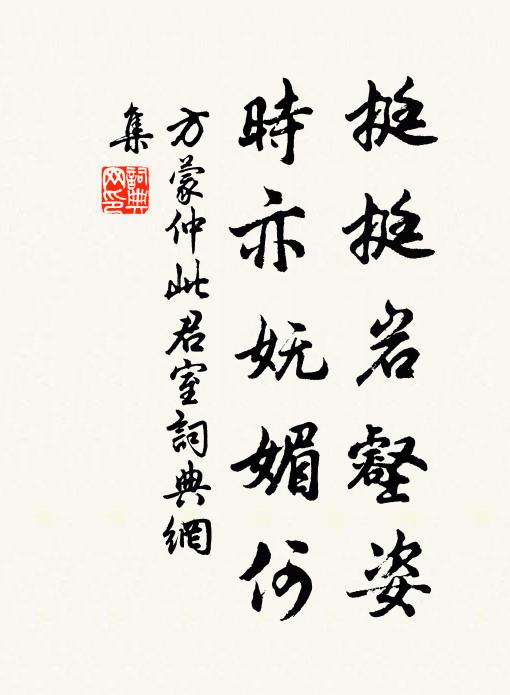 挺挺岩壑姿
時亦妩媚何
方蒙仲此君室詞典網
集
詞典网印